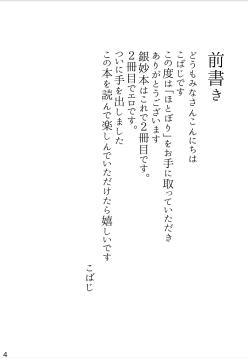 前書き
どうもみなさんこんにちは
こばじです
この度は「ほとぼり」をお手に取っていただき
ありがとうございます
銀妙本はこれで2冊目です。
2冊目でエロです。
ついに手を出しました
この本を読んで楽しんでいただけたら嬉しいです
こばじ
4